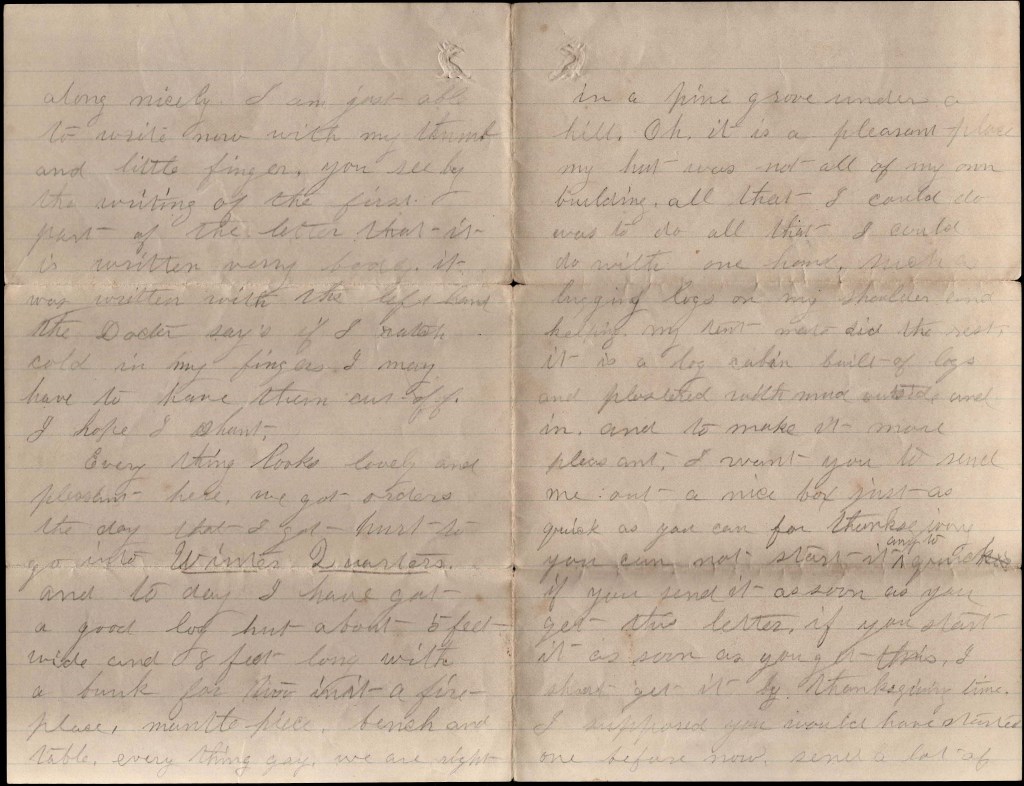 along nicely I am just able
to write now with my thumb
and little finger, you see by
the writing of the first
part of the letter that it
is written verry bode. it
was written with the left hand
the Docter say's if I catch
cold in my fingers I may
have to have them cut off.
I hope I shant,
Every thing looks lovely and
pleasant here, we got orders
the day that I got hurt to
go into Winter Quarters.
and to day I have got
a good log hut about 5 feet
wide and 8 feet long with
a bunk for two in it a fire
place, mantle piece, bench and
table, every thing gay, we are right
in a pine grove under a
hill, Oh, it is a pleasant place
my hut was not all of my own
building, all that I could do
was to do all that I could
do with one hand, such as
luging logs on my shoulder and
my tent mate did the rest,
it is a log cabin built of logs
and plastered with mud outside and
in. and to make it more
pleasant, I want you to send
me out a nice box just as
quick as you can for thanksgiving
you can not start it any to quick
if you send it as soon as you
get this letter, if you start
it as soon as you get this, I
shant get it by thanksgiving time.
I supposed you would have started
one before now, send a lot of